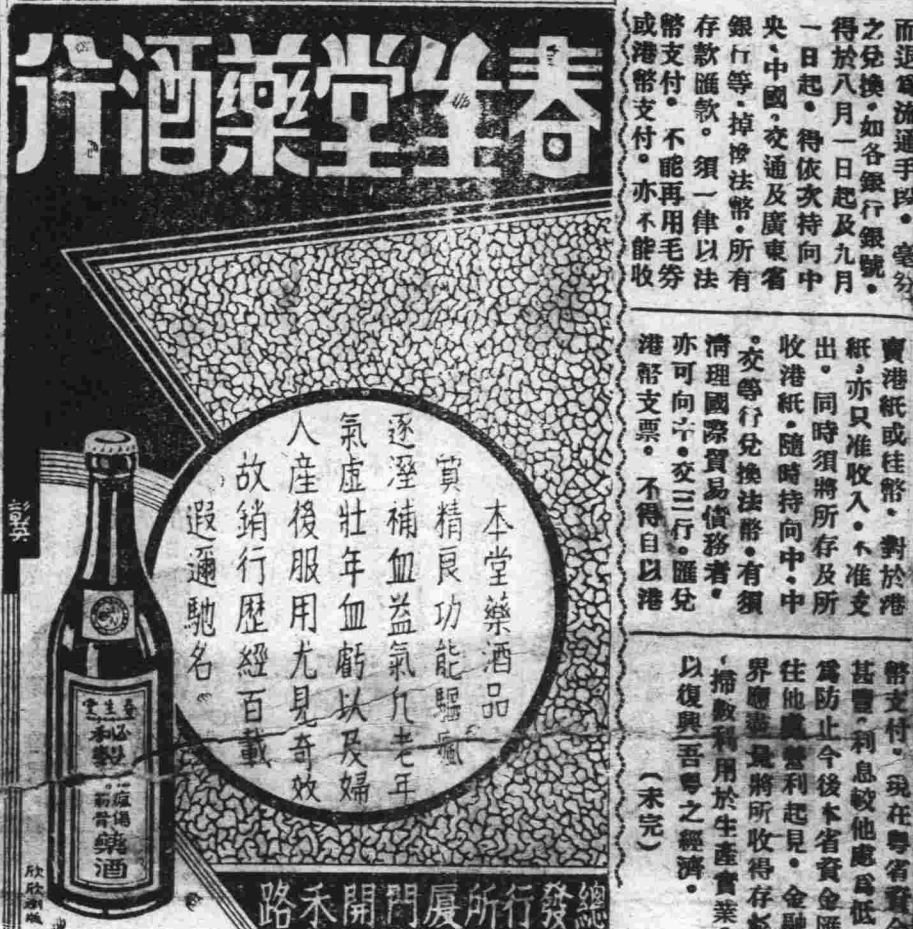 春生堂藥酒行
本堂藥酒品
質精良功能驅瘋
逐溼補血益氣凡老年
氣虛壯年血虧以及婦
人產後服用尤見奇效
故銷行歷經百載
遐邇馳名
春生堂
藥酒
欣欣製版
總發行所廈門開禾路
而退爲流通手段。毫券
之兌換。如各銀行銀號。
得於八月一日起及九月
一日起。得依次持向中
央、中國、交通及廣東省
銀行等、掉換法幣。所有
存款匯款。須一律以法
幣支付。不能再用毛券
或港幣支付。亦不能收
賣港紙或桂幣。對於港
紙、亦只准收入。不准支
出。同時須將所存及所
收港紙。隨時持向中。中
。交等行兌換法幣。有須
清理國際貿易債務者。
亦可向中。交三行。匯兌
港幣支票。不得自以港
幣支付。現在粵省資金
甚豐。利息較他處爲低
爲防止今後本省資金匯
往他處營利起見。金融
界應盡量將所收得存款
、掃數利用於生產實業。
以復興吾粵之經濟。
(未完)